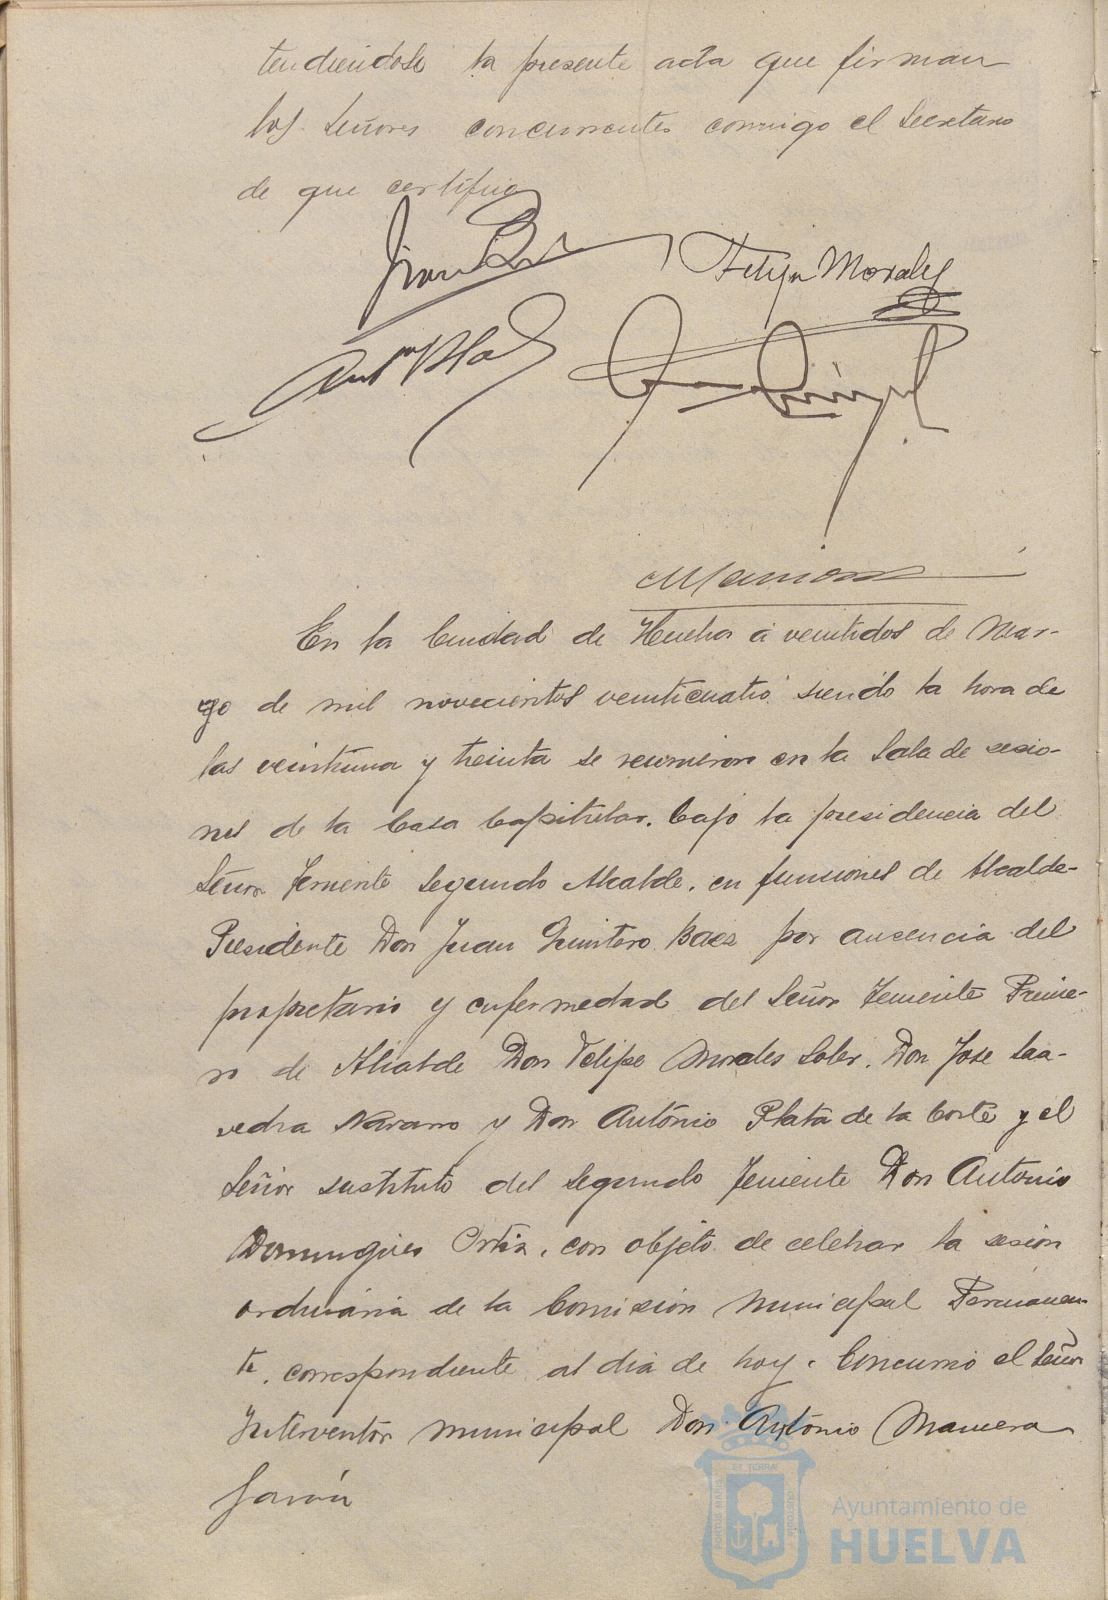 tendiéndose la presente acta que firman
los Señores concurrentes conmigo el Secretario
de que certifico
Felipe Morales
Antº Plata
En la Ciudad de Huelva a veintidos de Mar-
zo de mil novecientos veinticuatro siendo la hora de
las veintiuna y treinta se reunieron en la Sala de sesio-
nes de la Casa Capitular, bajo la presidencia del
Señor Teniente Segundo Alcalde, en funciones de Alcalde-
Presidente Don Juan Quintero Baez por ausencia del
propietario y enfermedad del Señor Teniente Prime-
ro de Alcalde Don Felipe Morales Soler, Don Jose Saa-
vedra Navarro y Don António Plata de la Corte y el
Señor sustituto del Segundo Teniente Don Antonio
Domingues Ortiz, con objeto de celebrar la sesion
ordinaria de la Comisión Municipal Permanen-
te, correspondiente al dia de hoy. Concurrio el Señor
Interventor municipal Don António Manuera
Garcia
Ayuntamiento de
HUELVA